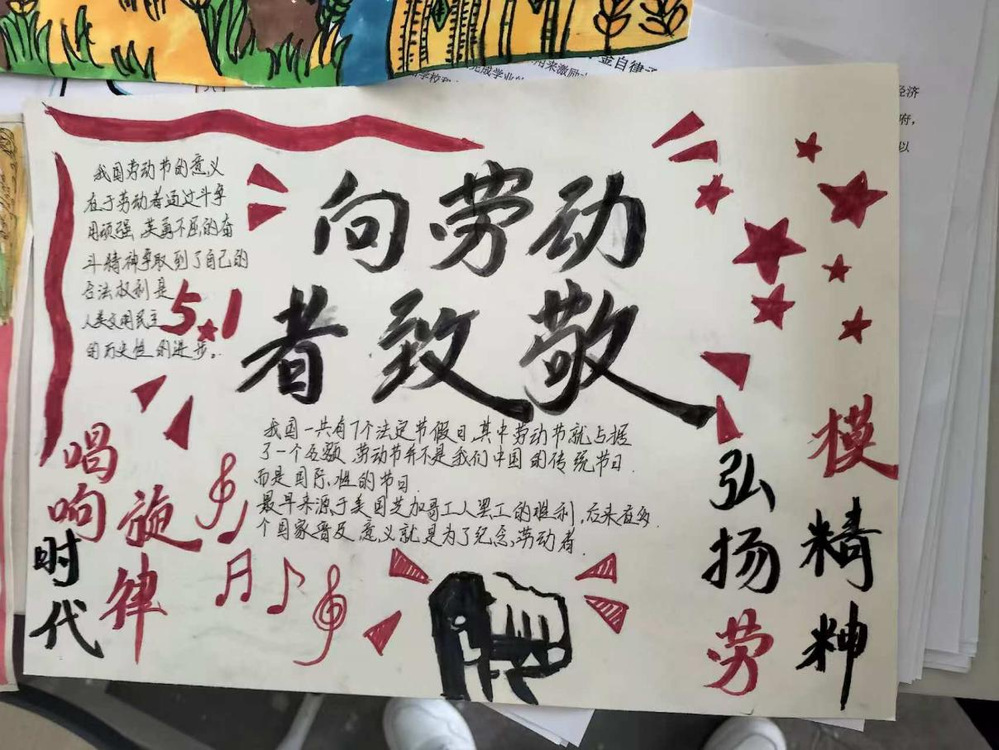 向劳动
者致敬
我国劳动节的意义
在于劳动者通过斗争
用顽强、英勇不屈的奋
斗精神争取到了自己的
合法权利是
人类文明民主
的历史性的进步.
5.1
我国一共有7个法定节假日,其中劳动节就占据
了一个名额 劳动节并不是我们中国的传统节日.
而是国际性的节日
最早来源于美国芝加哥工人罢工的胜利,后来在多
个国家普及 意义就是为了纪念,劳动者.
唱响时代
旋律
弘扬劳
模精神
完成学业
用来激励
金自律
经济
府,
以